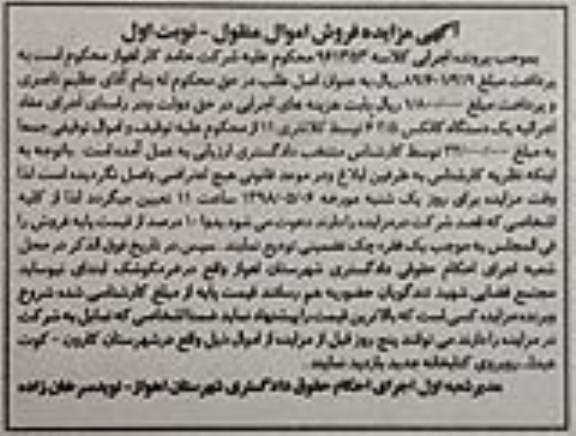 آگهی مزایده فروش اموال منقول - نوبت اول
بموجب پرونده اجرایی کلاسه ۹۶۱۳۵۳ محکوم علیه شرکت حامد کار اهواز محکوم است به
پرداخت مبلغ ریال به عنوان اصل طلب در حق محکوم له بنام آقای عظیم ناصری
و پرداخت مبلغ ریال بابت هزینه های اجرایی در حق دولت ودر راستای اجرای مفاد
اجرائیه یک دستگاه کانکس توسط کلانتری ۱۱ از محکوم علیه توقیف و اموال توقیفی جمعا
به مبلغ توسط کارشناس منتخب دادگستری ارزیابی به عمل آمده است. باتوجه به
اینکه نظریه کارشناس به طرفین ابلاغ ودر موعد قانونی هیچ اعتراضی واصل نگردیده است لذا
وقت مزایده برای روز یک شنبه مورخه ۱۳۹۸/۰۵/۰۶ ساعت ۱۱ تعیین میگردد لذا از کلیه
اشخاصی که قصد شرکت درمزایده را دارند دعوت می شود بدوا ۱۰ درصد از قیمت پایه فروش را
فی المجلس به موجب یک فقره چک تضمینی تودیع نمایند. سپس در تاریخ فوق الذکر در محل
شعبه اجرای احکام حقوقی دادگستری شهرستان اهواز واقع در ابتدای نیوساید
مجتمع قضایی شهید تندگویان حضور به هم رسانند قیمت پایه از مبلغ کارشناسی شده شروع
وبرنده مزایده کسی است که بالاترین قیمت را پیشنهاد نماید ضمنا اشخاصی که تمایل به شرکت
در مزایده را دارند می توانند پنج روز قبل از مزایده از اموال ذیل واقع درشهرستان کارون - کوت
عبدا.. روبروی کتابخانه جدید بازدید نمایند.
مدیر شعبه اول اجرای احکام حقوق دادگستری شهرستان اهواز - نویدسرخان زاده